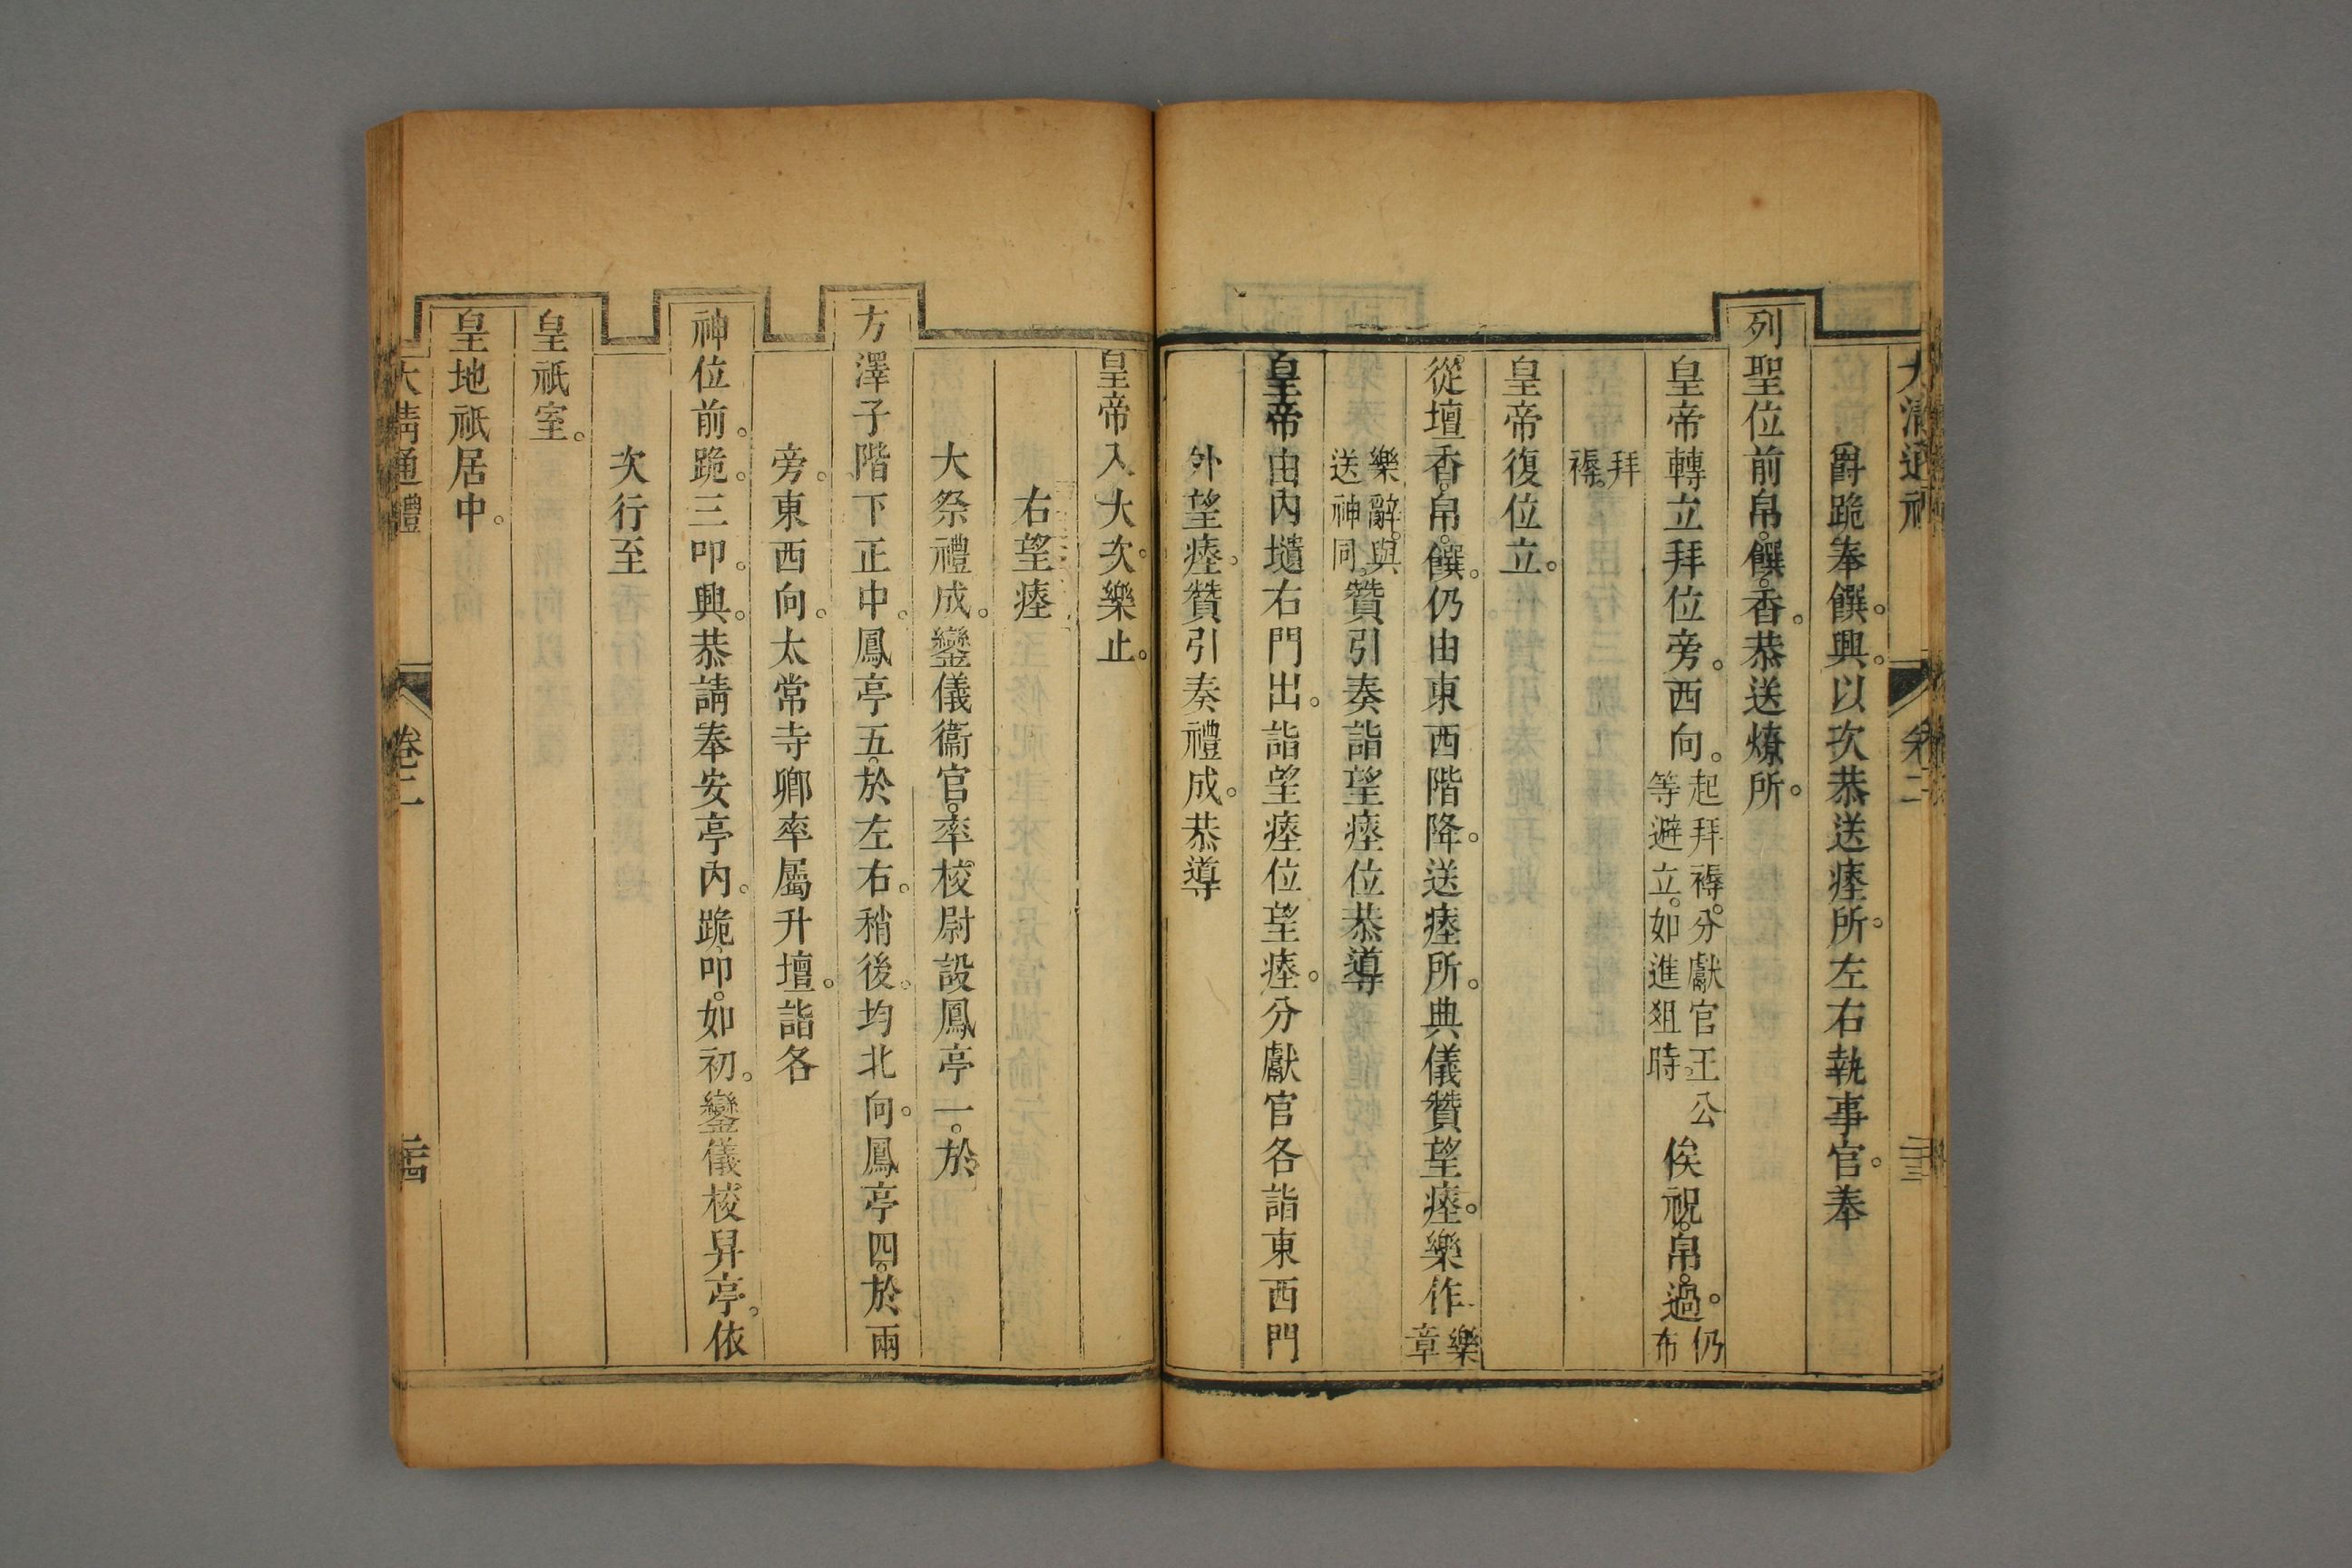 大清通禮 卷二 二十三
爵跪奉饌。興。以次恭送瘞所。左右執事官。奉
列聖位前帛。饌。香。恭送燎所。
皇帝轉立拜位旁。西向。起拜褥。分獻官王公等避立。如進俎時。俟祝。帛。過。仍布
拜褥。
皇帝復位立。
從壇香。帛。饌。仍由東西階降。送瘞所。典儀贊望瘞。樂作樂章
樂辭。與送神同。贊引奏詣望瘞位恭導
皇帝由內壝右門出。詣望瘞位望瘞。分獻官各詣東西門
外望瘞。贊引奏禮成。恭導
皇帝入大次。樂止。
右望瘞
大祭禮成。鑾儀衞官。率校尉設鳳亭一。於
方澤子階下正中。鳳亭五。於左右。稍後。均北向。鳳亭四。於兩
旁。東西向。太常寺卿率屬升壇。詣各
神位前。跪。三叩。興。恭請奉安亭內。跪叩。如初。鑾儀校舁亭。依
次行至
皇祇室。
皇地祇居中。
大清通禮 卷二 二十四